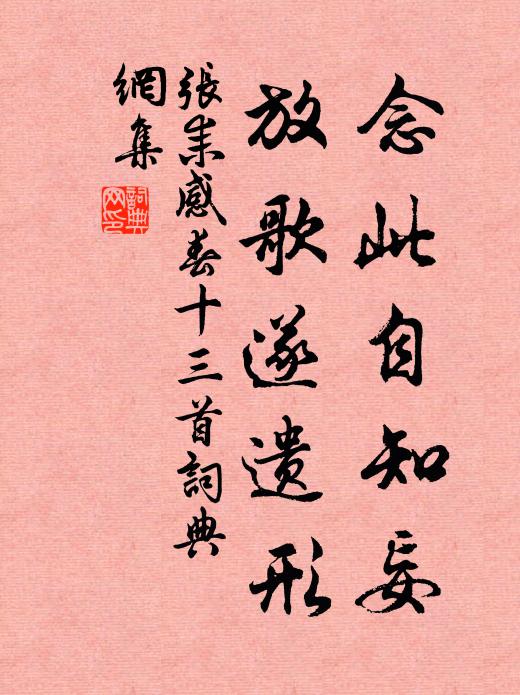 念此自知妄
放歌遂遗形
張耒感春十三首詞典
網集
詞典
网印